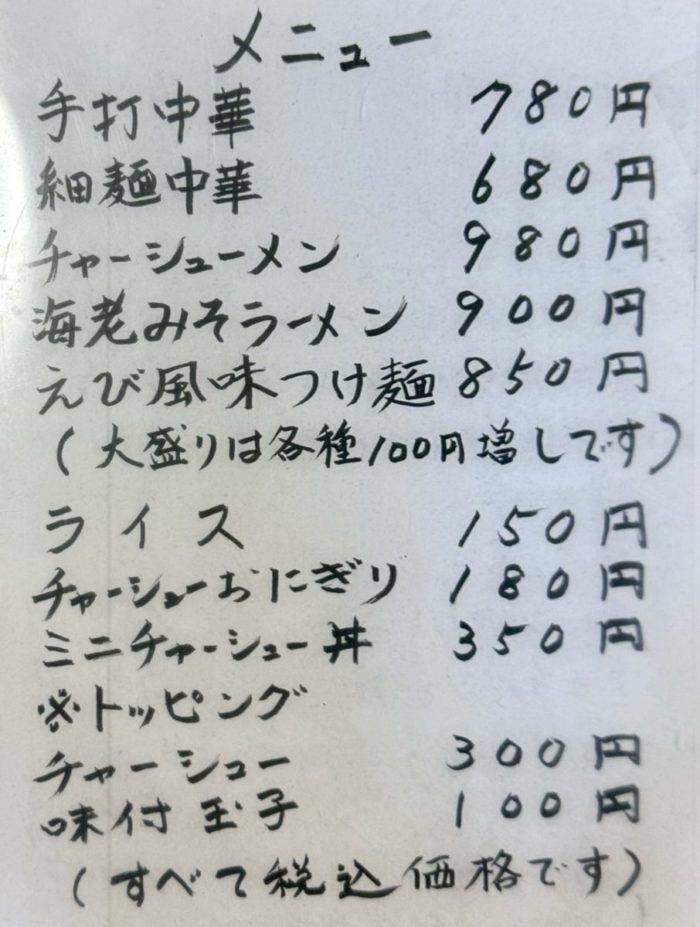 メニュー
手打中華 780円
細麺中華 680円
チャーシューメン 980円
海老みそラーメン 900円
えび風味つけ麺 850円
(大盛りは各種100円増しです)
ライス 150円
チャーシューおにぎり 180円
ミニチャーシュー丼 350円
※トッピング
チャーシュー 300円
味付玉子 100円
(すべて税込価格です)